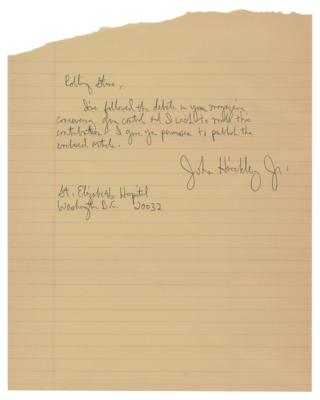 Rolling Stone,
I've followed the debate in your magazine
concerning gun control and I wish to make this
contribution. I give you permission to publish the
enclosed article.
John Hinckley Jr.
St. Elizabeths Hospital
Washington D.C. 20032